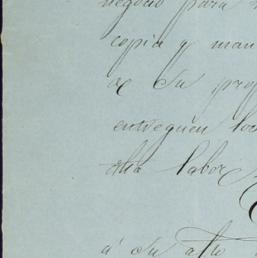 negocio para
copia y man
de su prop
entreguen los
dha labor
á su alto